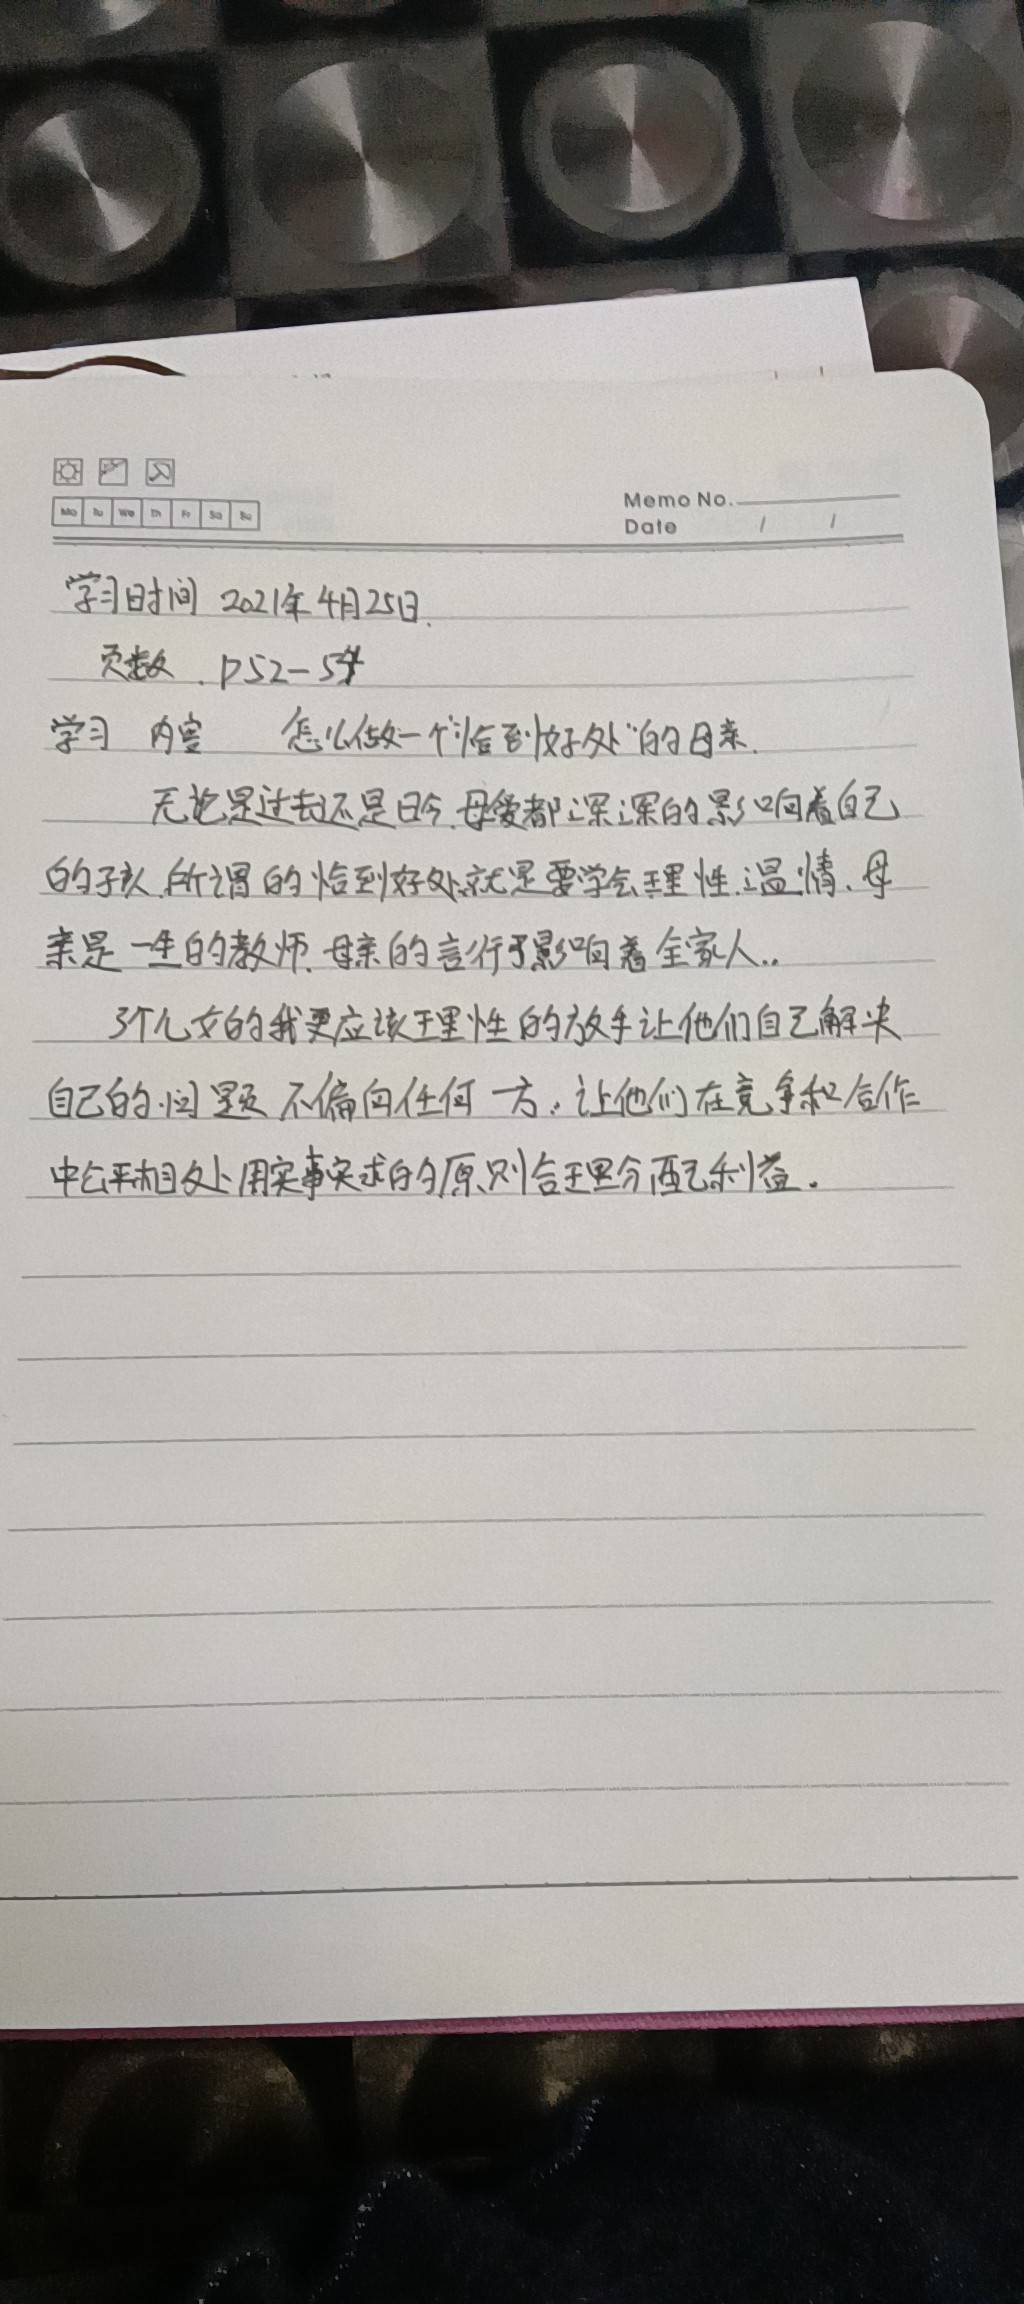 Mo Tu We Th Fr Sa Su
Memo No.
Date / /
学习时间 2021年4月25日.
页数. P52-54
学习 内容 怎么做一个“恰到好处”的母亲.
无论是过去还是日今.母爱都深深的影响着自己
的子女.所谓的恰到好处就是要学会理性.温情、母
亲是一生的教师.母亲的言行于影响着全家人..
3个儿女的我更应该理性的放手让他们自己解决
自己的问题 不偏向任何一方。让他们在竞争和合作
中公平相处用实事实求的原则合理分配利益.